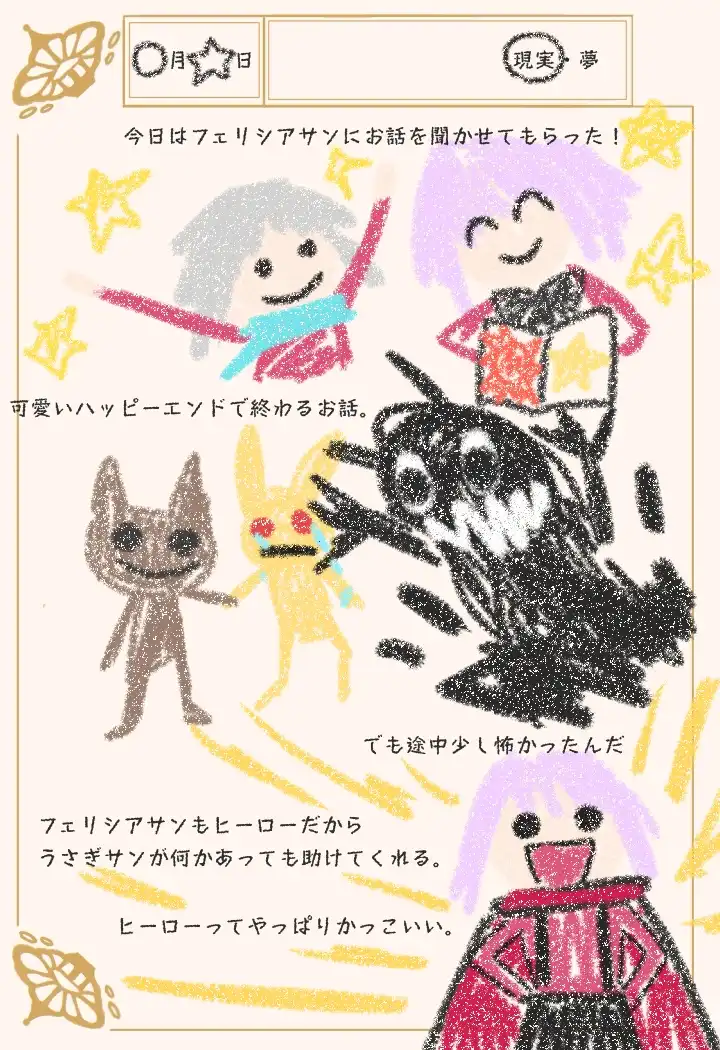 ○月☆日
現実・夢
今日はフェリシアサンにお話を聞かせてもらった!
可愛いハッピーエンドで終わるお話。
でも途中少し怖かったんだ
フェリシアサンもヒーローだから
うさぎサンが何かあっても助けてくれる。
ヒーローってやっぱりかっこいい。